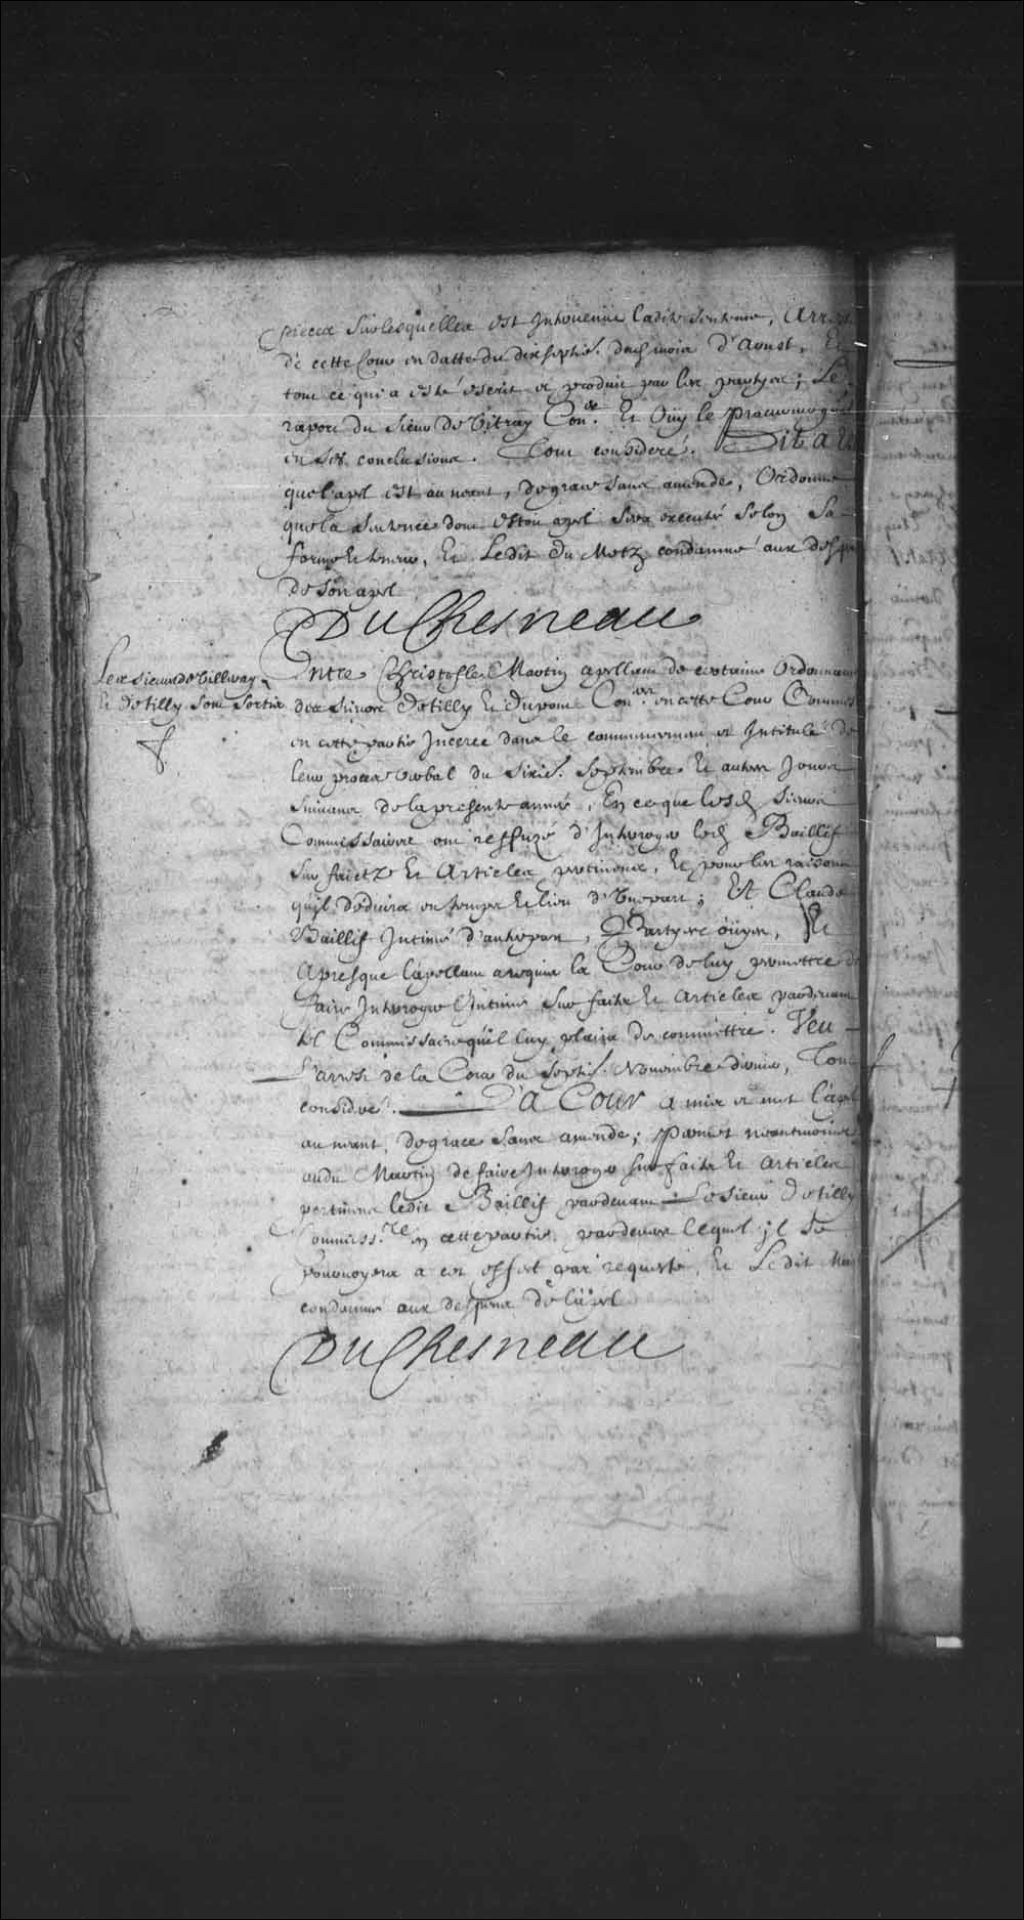 pieces surlesquelles est Intervenüe ladite sentence, Arrest
de cette Cour en datte du dixseptie. dud. mois d'Aoust, Et
tout ce qui a esté escrit et produit par les partyes; Le
raport du sieur de Vitray Con.er Et Oüy le procureur g
en ses conclusions. Tout consideré. Dit a
que l'apel est au neant, de grace sans amende, Ordonne
que la sentence dont estoit apel sera executé selon sa
forme Et teneur, Et Ledit Du Metz condamné aux desp
de son apel
DuChesneau
Les sieurs de Villeray
Et de Tilly sont sortis
Entre Christofle Martin apellant de certaine Ordonnance
des sieurs de Tilly Et Dupont Con.ers en cette Cour Commis
en cette partie Inceree dans le commencement et Intitulé de
leur procez verbal du sixie. Septembre Et autres Jours
suivans de la presente année, En ce que lesd. sieurs
Commissaires ont reffuzé d'Interoger led. Baillif
sur faictz Et Articles pertinens, Et pour les raisons
qu'jl deduira en temps Et lieu d'Vne part; Et Claude
Baillif Intimé d'autre part, Partyes oüyes, Et
Apres que l'apellant a requis la Cour de luy permettre de
faire Interoger l'Intimé sur faits Et articles pardevant
tel Commissaire qu'il luy plaira de commettre. Veu
L'arrest de la Cour du septie. Novembre dernier, Tout
consideré. La Cour a mis et met l'apel
au neant, de grace sans amende; Permet neantmoins
audit Martin de faire Interoger sur faits Et articles
pertinens ledit Baillif pardevant Le sieur de Tilly
Commiss.re en cette partie, pardevers lequel jl se
pourvoyera a cet effet par requeste, Et Ledit Mar
condamné aux despens de l'apel
DuChesneau